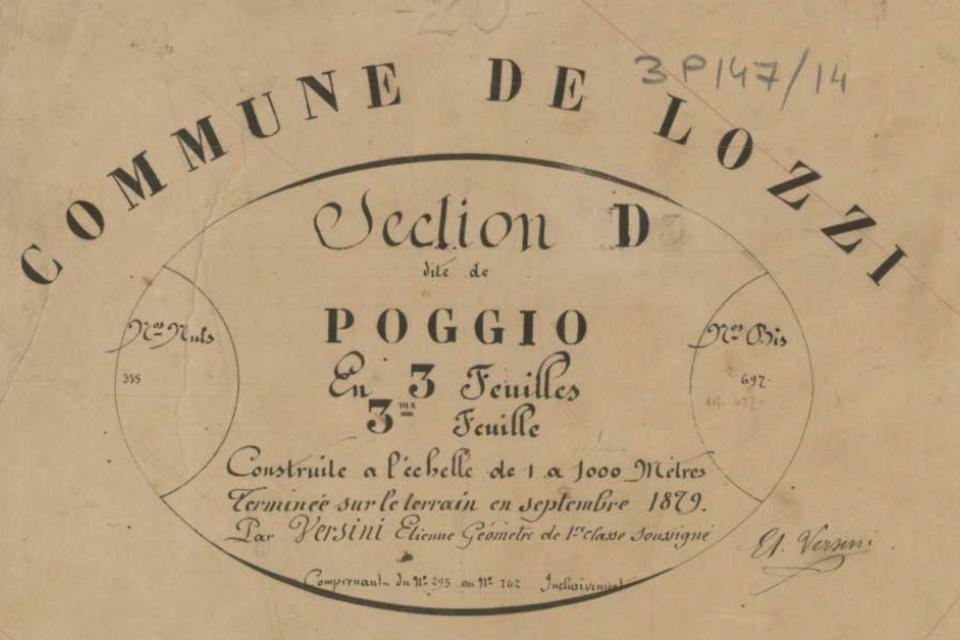 -20-
3P147/14
COMMUNE DE LOZZI
Section D
dite de
POGGIO
En 3 Feuilles
3me Feuille
Nos Nuls
335
Nos Bis
697.
Construite a l'échelle de 1 a 1000 Mètres
Terminée sur le terrain en septembre 1879.
Par Versini Etienne Géomètre de 1re classe soussigné
Et. Versini
Comprenant du No 295 au No 762 Inclusivement